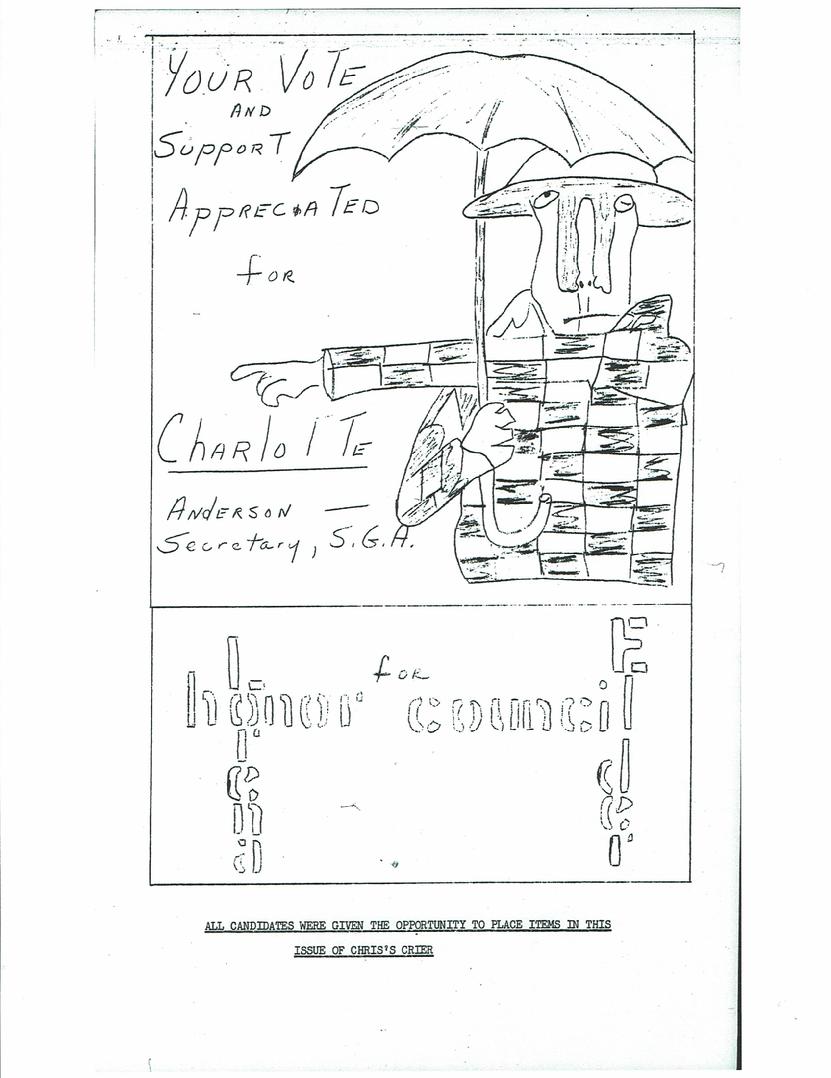 YOUR VOTE
AND
SuppORT
AppRECiATED
fOR
ChARloTTE
ANdERSON —
Secretary, S.G.A.
lorena
fOR
honor council
Elder
ALL CANDIDATES WERE GIVEN THE OPPORTUNITY TO PLACE ITEMS IN THIS
ISSUE OF CHRIS'S CRIER